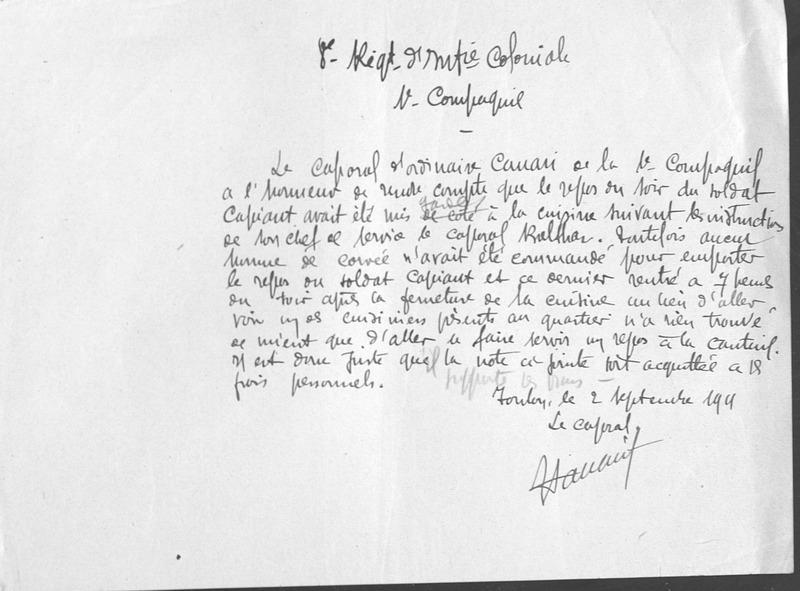 8e Régt d'Infie Coloniale
Compagnie
Le caporal d'ordinaire Canari de la Compagnie
a l'honneur de rendre compte que le repas du soir du soldat
Capiant avait été mis de coté à la cuisine suivant les instructions
de son chef de service le caporal. Toutefois aucun
homme de corvée n'avait été commandé pour emporter
le repas du soldat Capiant et ce dernier rentré a 7 heures
du soir après la fermeture de la cuisine au lieu d'aller
voir des cuisiniers présents au quartier n'a rien trouvé
de mieux que d'aller se faire servir un repas à la cantine.
Il est donc juste que la note ci jointe soit acquittée a
frais personnels.
supporte les frais
Toulon, le 2 Septembre 1911
Le caporal,